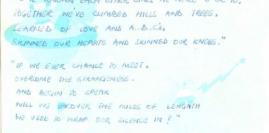 TOGETHER WE'VE CLIMBED HILLS AND TREES,
LEARNED OF LOVE AND A.B.C'S,
SKINNED OUR HEARTS AND SKINNED OUR KNEES."
"IF WE EVER CHANCE TO MEET,
OVERCOME THE STRANGENESS
AND BEGIN TO SPEAK
WILL WE THE MILES OF LENGTH
WE USED TO WRAP OUR SILENCE IN?"